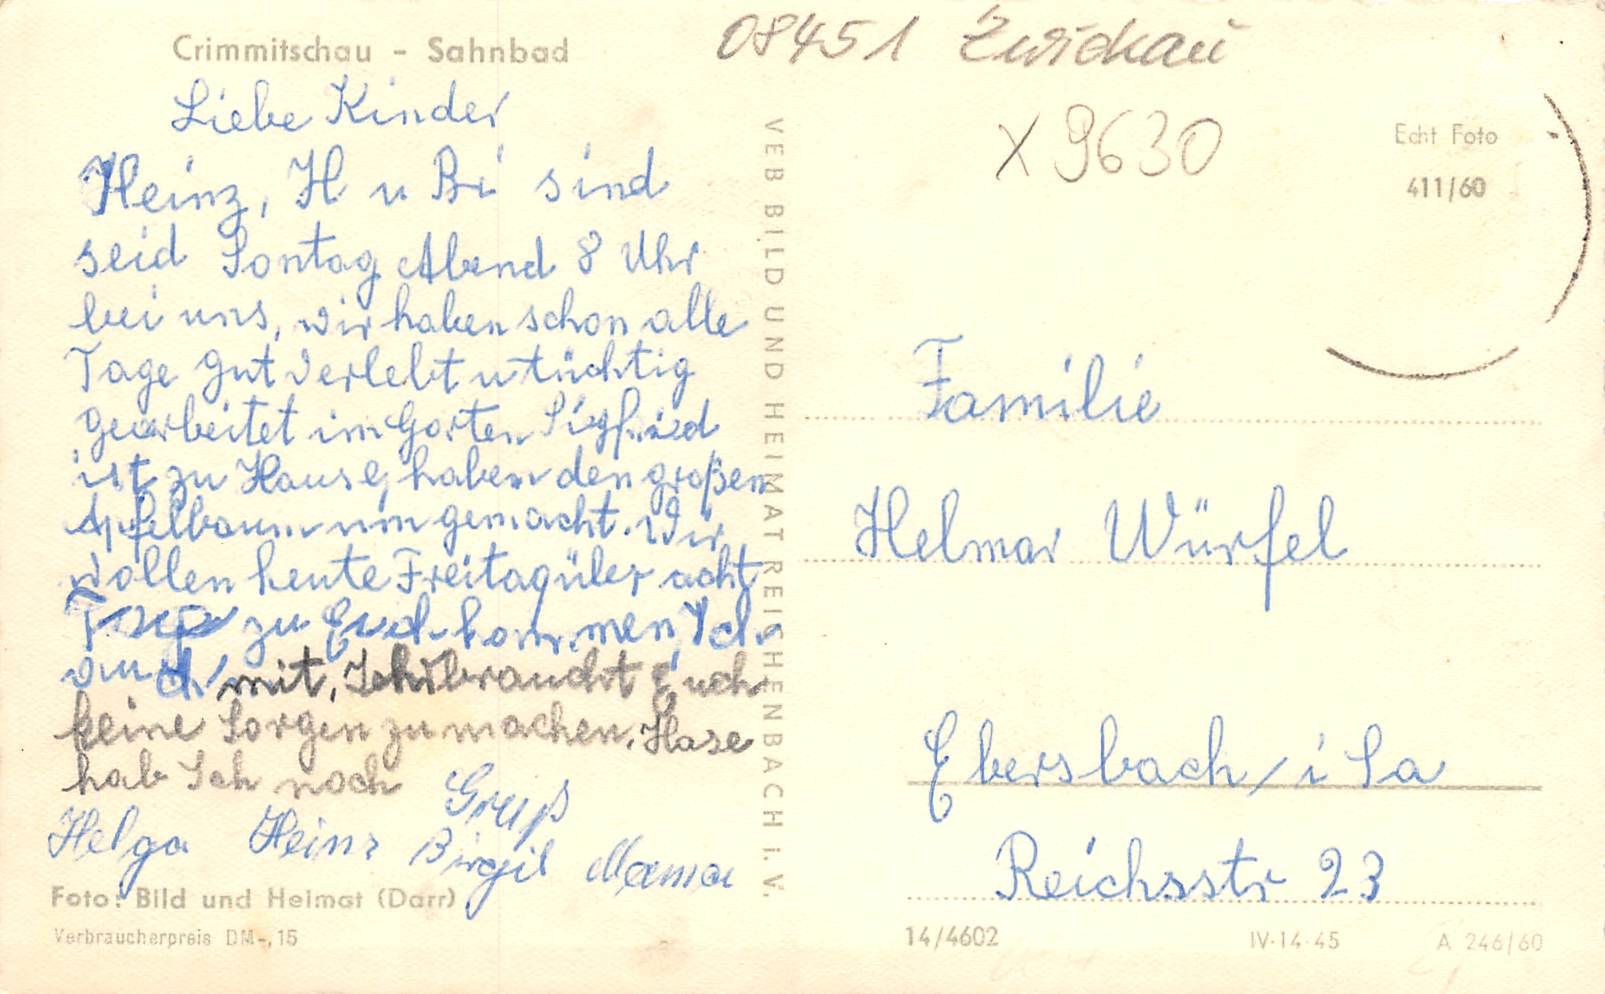 Crimmitschau - Sahnbad
08451 Zwickau
X 9630
Echt Foto
411/60
Liebe Kinder
Heinz, H u Bi sind
seid Sontag Abend 8 Uhr
bei uns, wir haben schon alle
Tage gut verlebt u tüchtig
gearbeitet im Garten Siegfried
ist zu Hause, haben den großen
Apfelbaum um gemacht. Wir
wollen heute Freitag über acht
Tage zu Euch kommen, Ich
auch mit, Ihr braucht Euch
keine Sorgen zu machen. Hase
hab Ich noch
Gruß
Helga Heinz Birgit Mama
Foto: Bild und Heimat (Darr)
Verbraucherpreis DM -,15
VEB BILD UND HEIMAT REICHENBACH I. V.
Familie
Helmar Würfel
Ebersbach / i Sa
Reichsstr 23
14/4602
IV-14-45
A 246/60